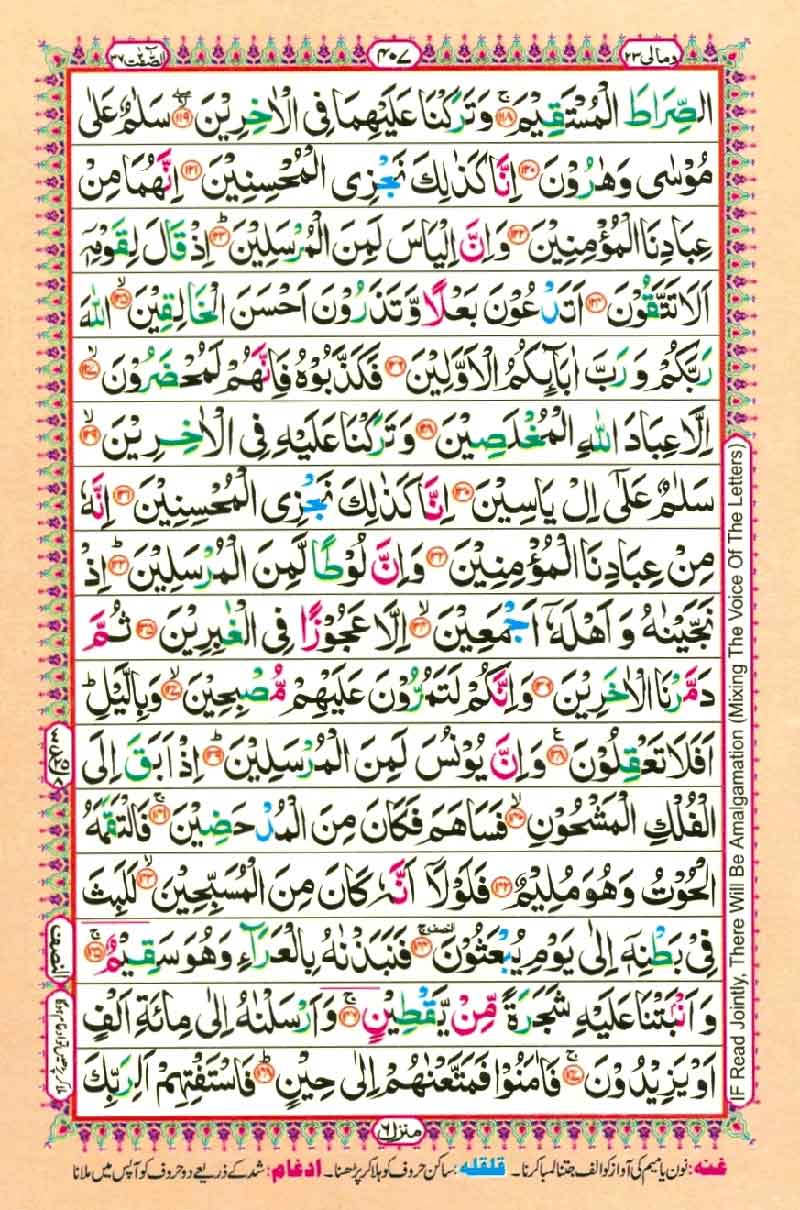 الصّٰٓفّٰت ٣٧
٤٠٧
ومالی ٢٣
الصِّرَاطَ الْمُسْتَقِيْمَ ۚ ١١٨ وَتَرَكْنَا عَلَيْهِمَا فِى الْاٰخِرِيْنَ ١١٩ سَلٰمٌ عَلٰى
مُوْسٰى وَهٰرُوْنَ ١٢٠ اِنَّا كَذٰلِكَ نَجْزِى الْمُحْسِنِيْنَ ١٢١ اِنَّهُمَا مِنْ
عِبَادِنَا الْمُؤْمِنِيْنَ ١٢٢ وَاِنَّ اِلْيَاسَ لَمِنَ الْمُرْسَلِيْنَ ؕ ١٢٣ اِذْ قَالَ لِقَوْمِهٖۤ
اَلَا تَتَّقُوْنَ ١٢٤ اَتَدْعُوْنَ بَعْلًا وَّتَذَرُوْنَ اَحْسَنَ الْخَالِقِيْنَ ۙ ١٢٥ اللّٰهَ
رَبَّكُمْ وَرَبَّ اٰبَآئِكُمُ الْاَوَّلِيْنَ ١٢٦ فَكَذَّبُوْهُ فَاِنَّهُمْ لَمُحْضَرُوْنَ ۙ ١٢٧
اِلَّا عِبَادَ اللّٰهِ الْمُخْلَصِيْنَ ١٢٨ وَتَرَكْنَا عَلَيْهِ فِى الْاٰخِرِيْنَ ۙ ١٢٩
سَلٰمٌ عَلٰٓى اِلْ يَاسِيْنَ ١٣٠ اِنَّا كَذٰلِكَ نَجْزِى الْمُحْسِنِيْنَ ١٣١ اِنَّهٗ
مِنْ عِبَادِنَا الْمُؤْمِنِيْنَ ١٣٢ وَاِنَّ لُوْطًا لَّمِنَ الْمُرْسَلِيْنَ ؕ ١٣٣ اِذْ
نَجَّيْنٰهُ وَاَهْلَهٗۤ اَجْمَعِيْنَ ۙ ١٣٤ اِلَّا عَجُوْزًا فِى الْغٰبِرِيْنَ ١٣٥ ثُمَّ
دَمَّرْنَا الْاٰخَرِيْنَ ١٣٦ وَاِنَّكُمْ لَتَمُرُّوْنَ عَلَيْهِمْ مُّصْبِحِيْنَ ۙ ١٣٧ وَبِالَّيْلِ ؕ
اَفَلَا تَعْقِلُوْنَ ١٣٨ وَاِنَّ يُوْنُسَ لَمِنَ الْمُرْسَلِيْنَ ؕ ١٣٩ اِذْ اَبَقَ اِلَى
الْفُلْكِ الْمَشْحُوْنِ ۙ ١٤٠ فَسَاهَمَ فَكَانَ مِنَ الْمُدْحَضِيْنَ ۚ ١٤١ فَالْتَقَمَهُ
الْحُوْتُ وَهُوَ مُلِيْمٌ ١٤٢ فَلَوْلَاۤ اَنَّهٗ كَانَ مِنَ الْمُسَبِّحِيْنَ ۙ ١٤٣ لَلَبِثَ
فِىْ بَطْنِهٖۤ اِلٰى يَوْمِ يُبْعَثُوْنَ ١٤٤ فَنَبَذْنٰهُ بِالْعَرَآءِ وَهُوَ سَقِيْمٌ ۚ ١٤٥
وَاَنْۢبَتْنَا عَلَيْهِ شَجَرَةً مِّنْ يَّقْطِيْنٍ ۚ ١٤٦ وَاَرْسَلْنٰهُ اِلٰى مِائَةِ اَلْفٍ
اَوْ يَزِيْدُوْنَ ۚ ١٤٧ فَاٰمَنُوْا فَمَتَّعْنٰهُمْ اِلٰى حِيْنٍ ؕ ١٤٨ فَاسْتَفْتِهِمْ اَلِرَبِّكَ
النصف
منزل ٦
IF Read Jointly, There Will Be Amalgamation (Mixing The Voice Of The Letters)
غنہ: نون یا میم کی آواز کو الف جتنا لمبا کرنا۔ قلقلہ: ساکن حروف کو ہلا کر پڑھنا۔ ادغام: شد کے ذریعے دو حروف کو آپس میں ملانا